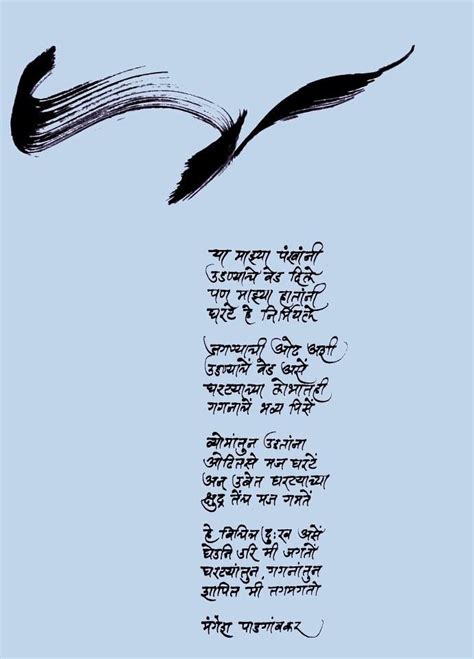 या माझ्या पंखांनी
उडण्याचे वेड दिले
पण माझ्या हातांनी
घरटे हे निर्मियले
जगण्याची ओढ अशी
उडण्याचें वेड असें
घरट्याच्या लोभातही
गगनाचें भव्य पिसें
व्योमांतुन उडतांना
ओढितसे मज घरटें
अन् उबेत घरट्याच्या
क्षुद्र तेंच मज गमतें
हे विचित्र दुःख असें
घेउनि उरि मी जगतों
घरट्यांतुन, गगनांतुन
शापित मी तगमगतो
मंगेश पाडगांवकर